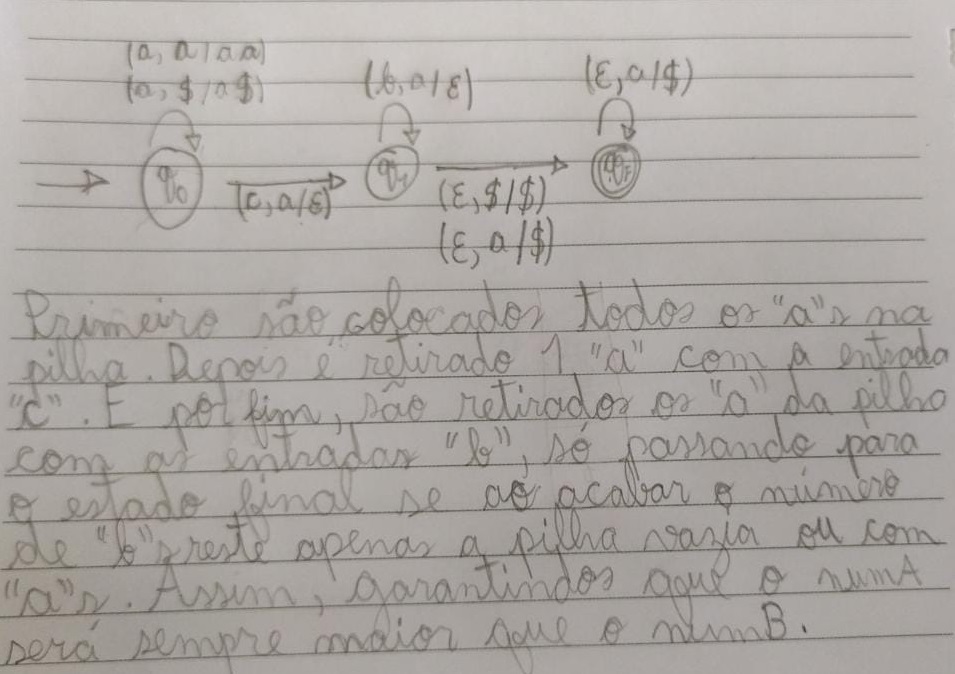 (a, a/aa)
(a, $/a$)
(b, a/ε)
(ε, a/$)
q0
q1
qF
(c, a/ε)
(ε, $/$)
(ε, a/$)
Primeiro são colocados todos os "a"s na
pilha. Depois é retirado 1 "a" com a entrada
"c". E por fim, são retirados os "a" da pilha
com as entradas "b", só passando para
o estado final se ao acabar o número
de "b"s reste apenas a pilha vazia ou com
"a"s. Assim, garantindos que o numA
será sempre maior que o numB.